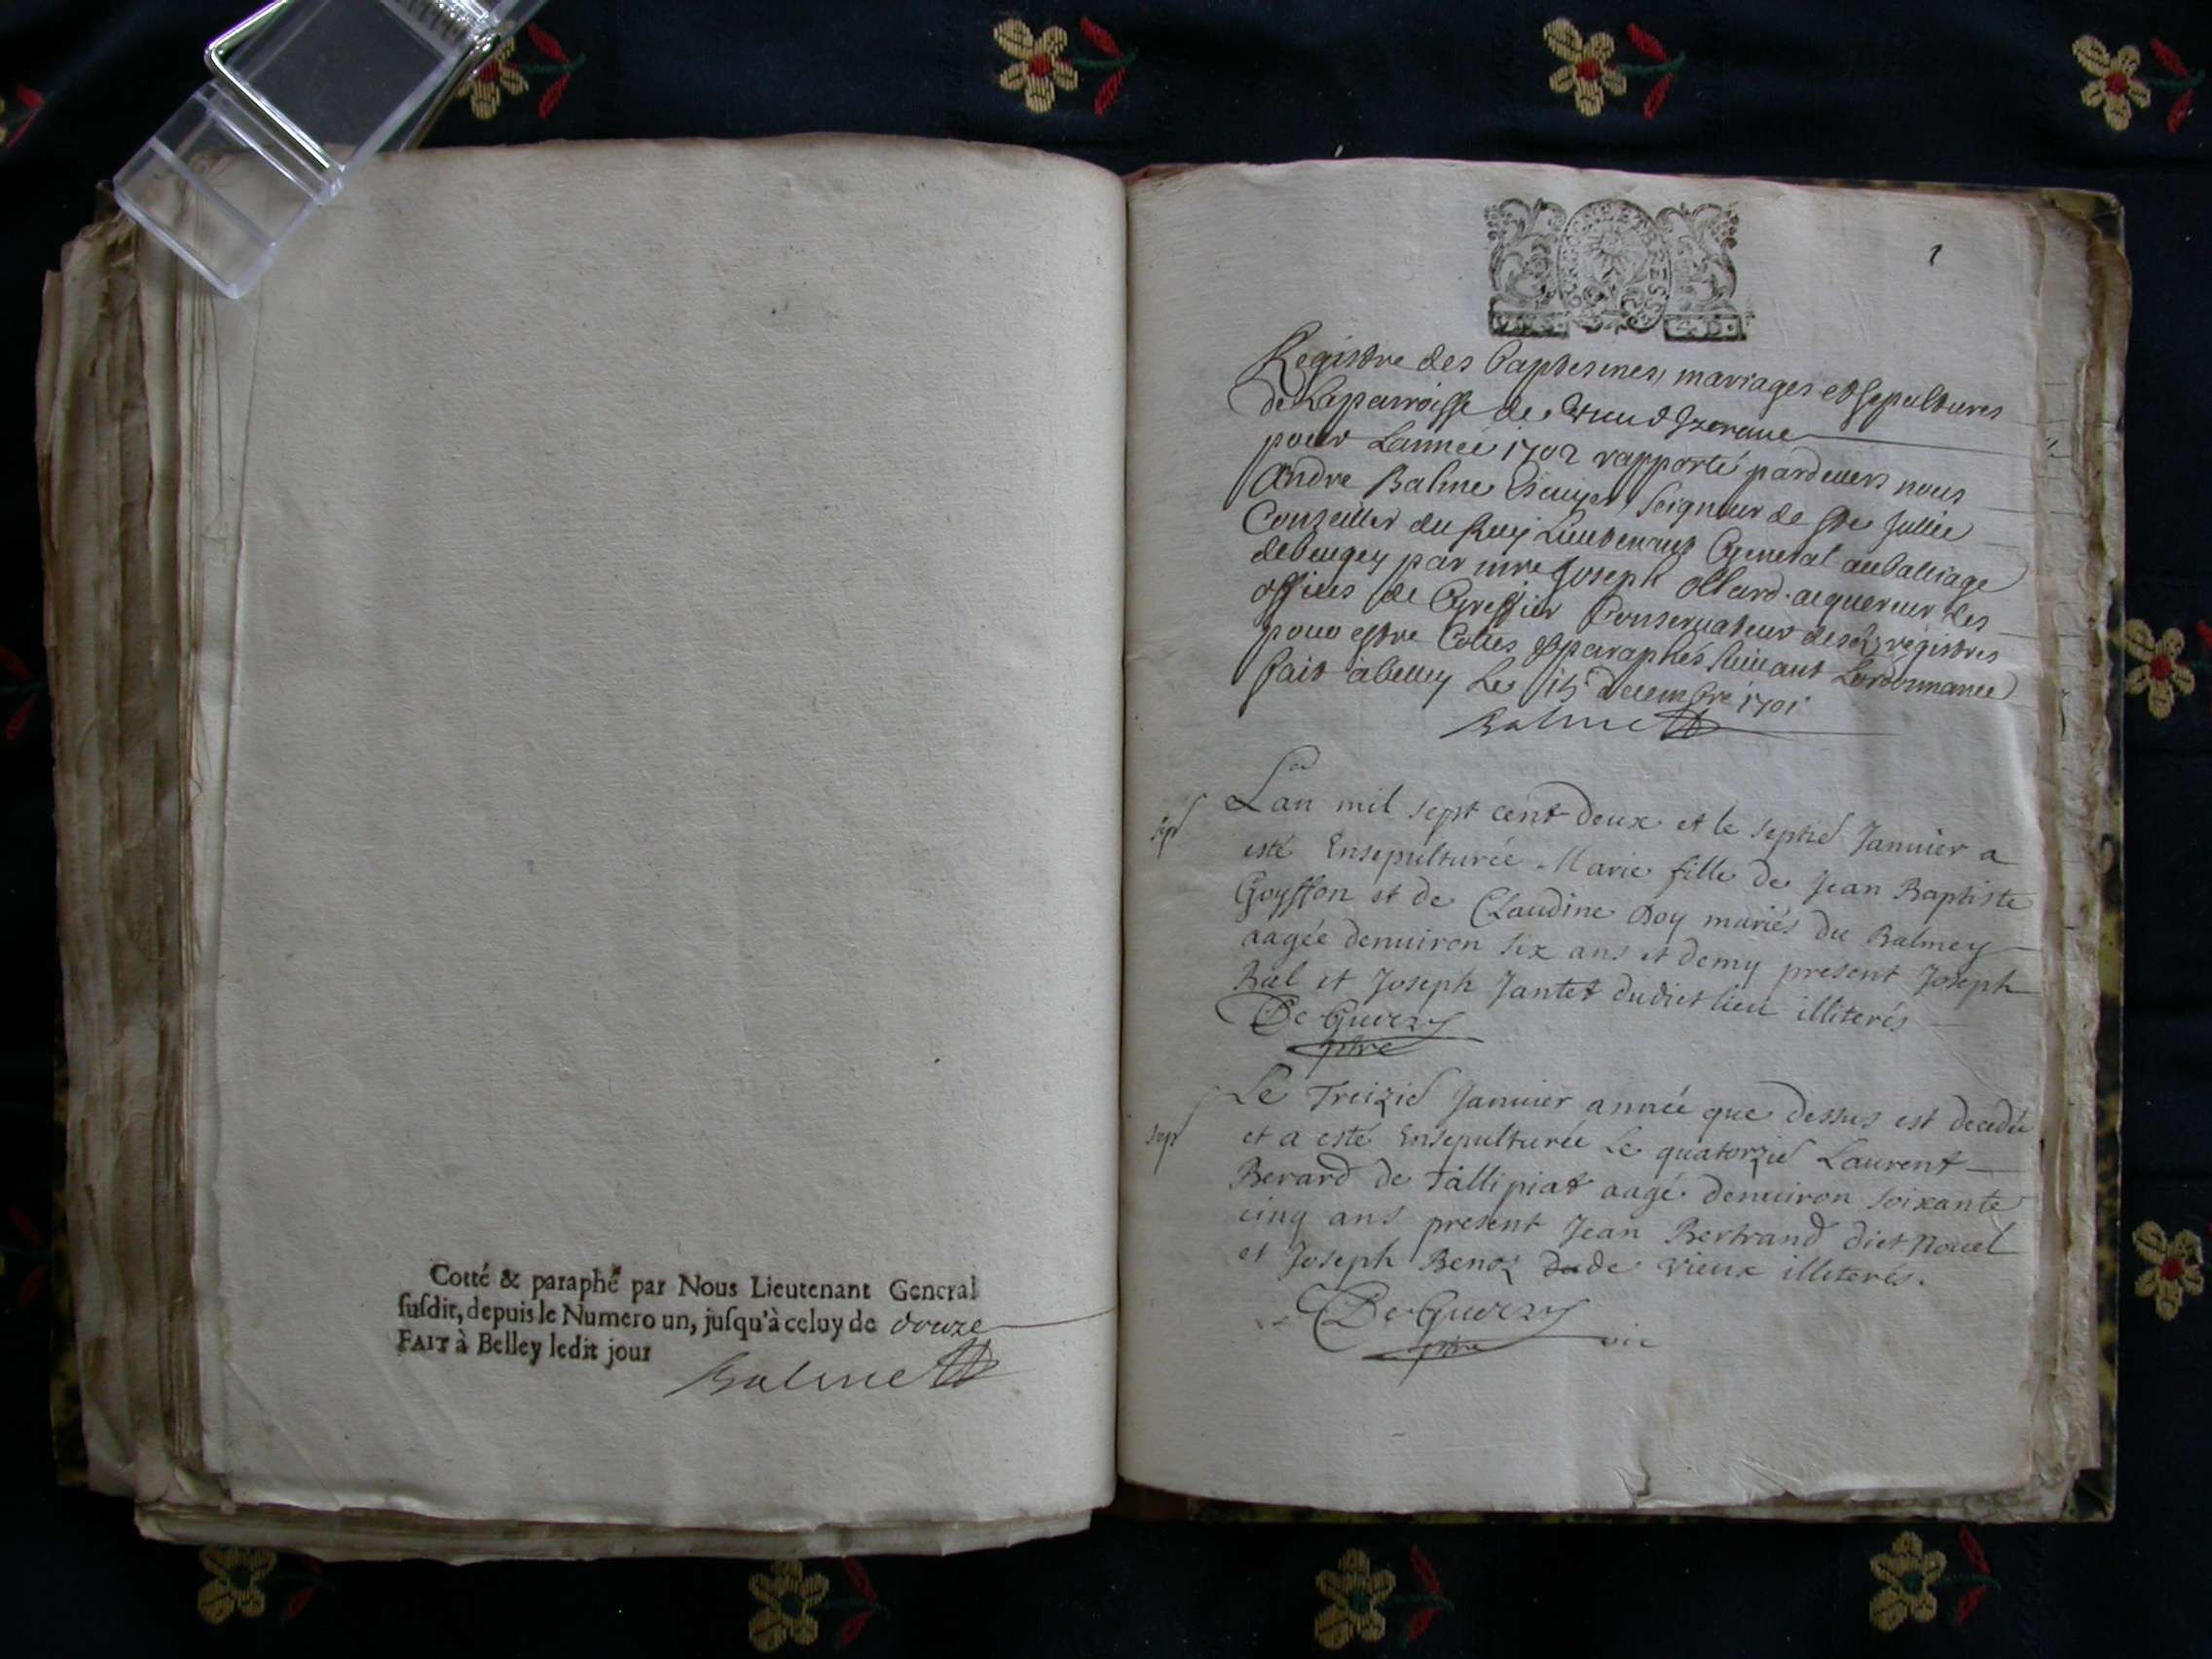 Cotté & paraphé par Nous Lieutenant General
ſuſdit, depuis le Numero un, juſqu'à celuy de douze
FAIT à Belley ledit jour
Balme
1
Registre des baptesmes, mariages et sepultures
de La parroisse de Vieu d'Izenaue
pour Lannée 1702 rapporté pardeuers nous
Andre Balme Escuyer, Seigneur de Ste Jullie
Conseiller du Roy Lieutenant General au balliage
de beugey par mre Joseph ollard acquereur des
offices de Greffier Conservateur desd registres
pour estre Cottes et paraphés suiuant Lordonnance
fait a belley Le 15 decembre 1701
Balme
sepr
Lan mil sept cent deux et le septie Januier a
esté Ensepulturée Marie fille de Jean Baptiste
Goyffon et de Claudine Doy mariés du Balmey
aagée denuiron six ans et demy present Joseph
Bal et Joseph Jantet dudict lieu illiterés
De Guerry
ptre
sepr
Le Treizie Januier année que dessus est decedé
et a esté Ensepulturée Le quatorzie Laurent
Berard de Tallipiat aagé denuiron soixante
cinq ans present Jean Bertrand dict Nouel
et Joseph Benoz de vieux illiterés.
De Guerry
ptre vic